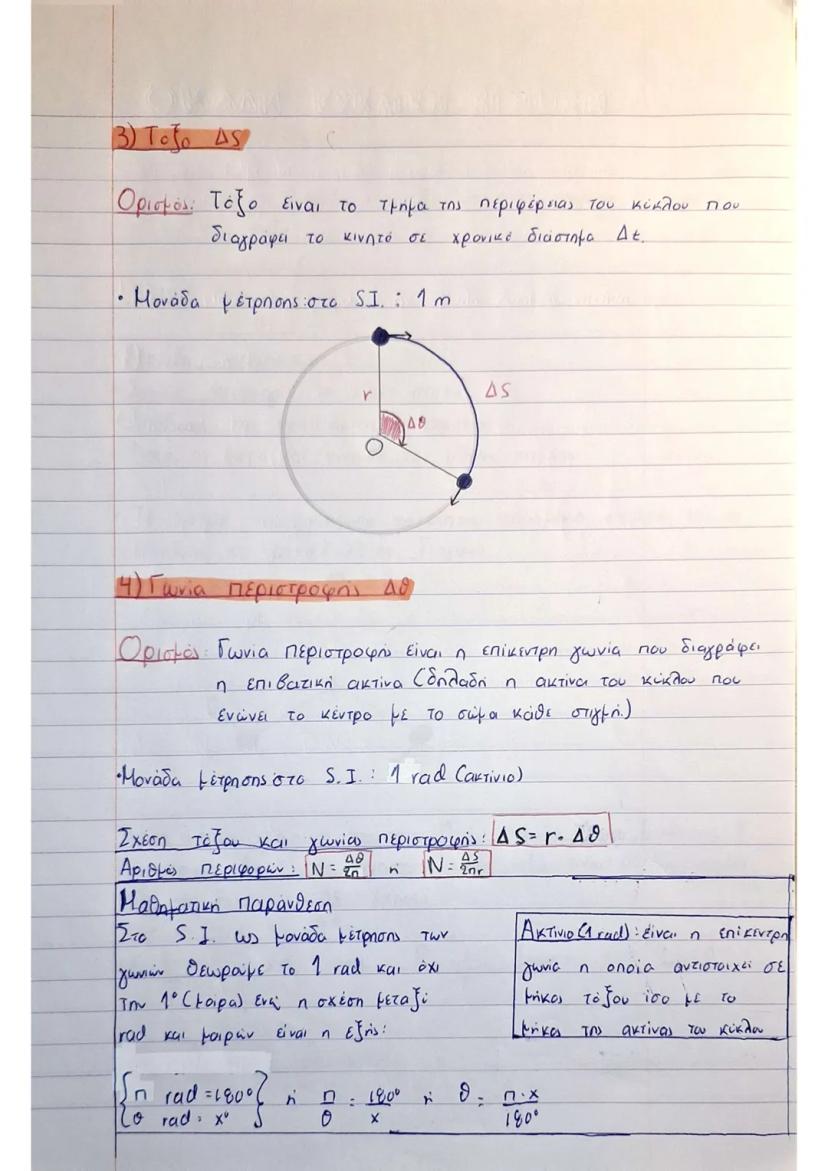 3) Τόξο ΔS
Ορισμός: Τόξο είναι το τμήμα της περιφέρειας του κύκλου που
διαγράφει το κινητό σε χρονικό διάστημα Δt.
• Μονάδα μέτρησης στο S.I. : 1 m
r
ΔS
Δθ
Ο
4) Γωνία περιστροφής Δθ
Ορισμός: Γωνία περιστροφής είναι η επίκεντρη γωνία που διαγράφει
η επιβατική ακτίνα (δηλαδή η ακτίνα του κύκλου που
ενώνει το κέντρο με το σώμα κάθε στιγμή.)
• Μονάδα μέτρησης στο S.I. : 1 rad (ακτίνιο)
Σχέση τόξου και γωνίας περιστροφής: ΔS = r · Δθ
Αριθμός περιφορών: N = Δθ/2π ή N = ΔS/2πr
Μαθηματική παράνθεση
Στο S.I. ως μονάδα μέτρησης των
γωνιών θεωρούμε το 1 rad και όχι
την 1° (μοίρα) ενώ η σχέση μεταξύ
rad και μοιρών είναι η εξής:
Ακτίνιο (1 rad): είναι η επίκεντρη
γωνία η οποία αντιστοιχεί σε
μήκος τόξου ίσο με το
μήκος της ακτίνας του κύκλου
{π rad = 180°
θ rad = x°} ή π/θ = 180°/x ή θ = π·x/180°